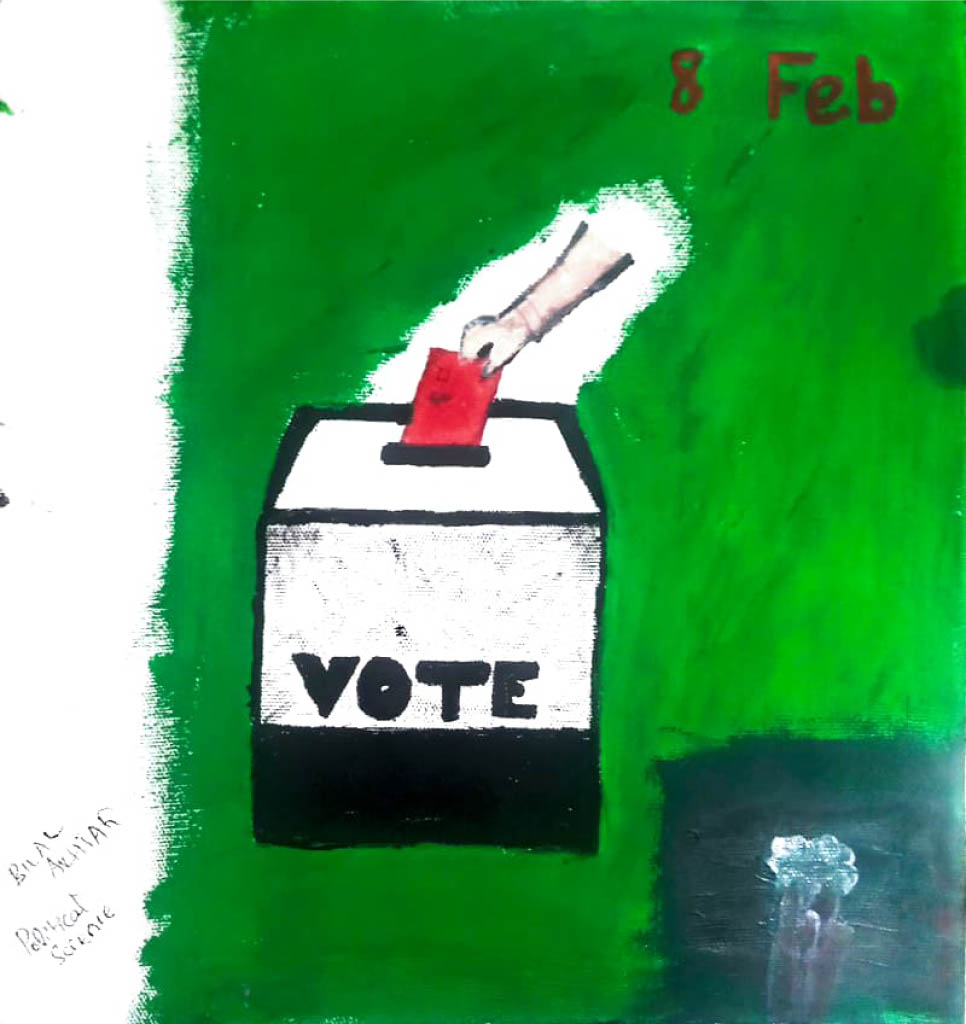 8 Feb
VOTE
BILAL
Political
Science